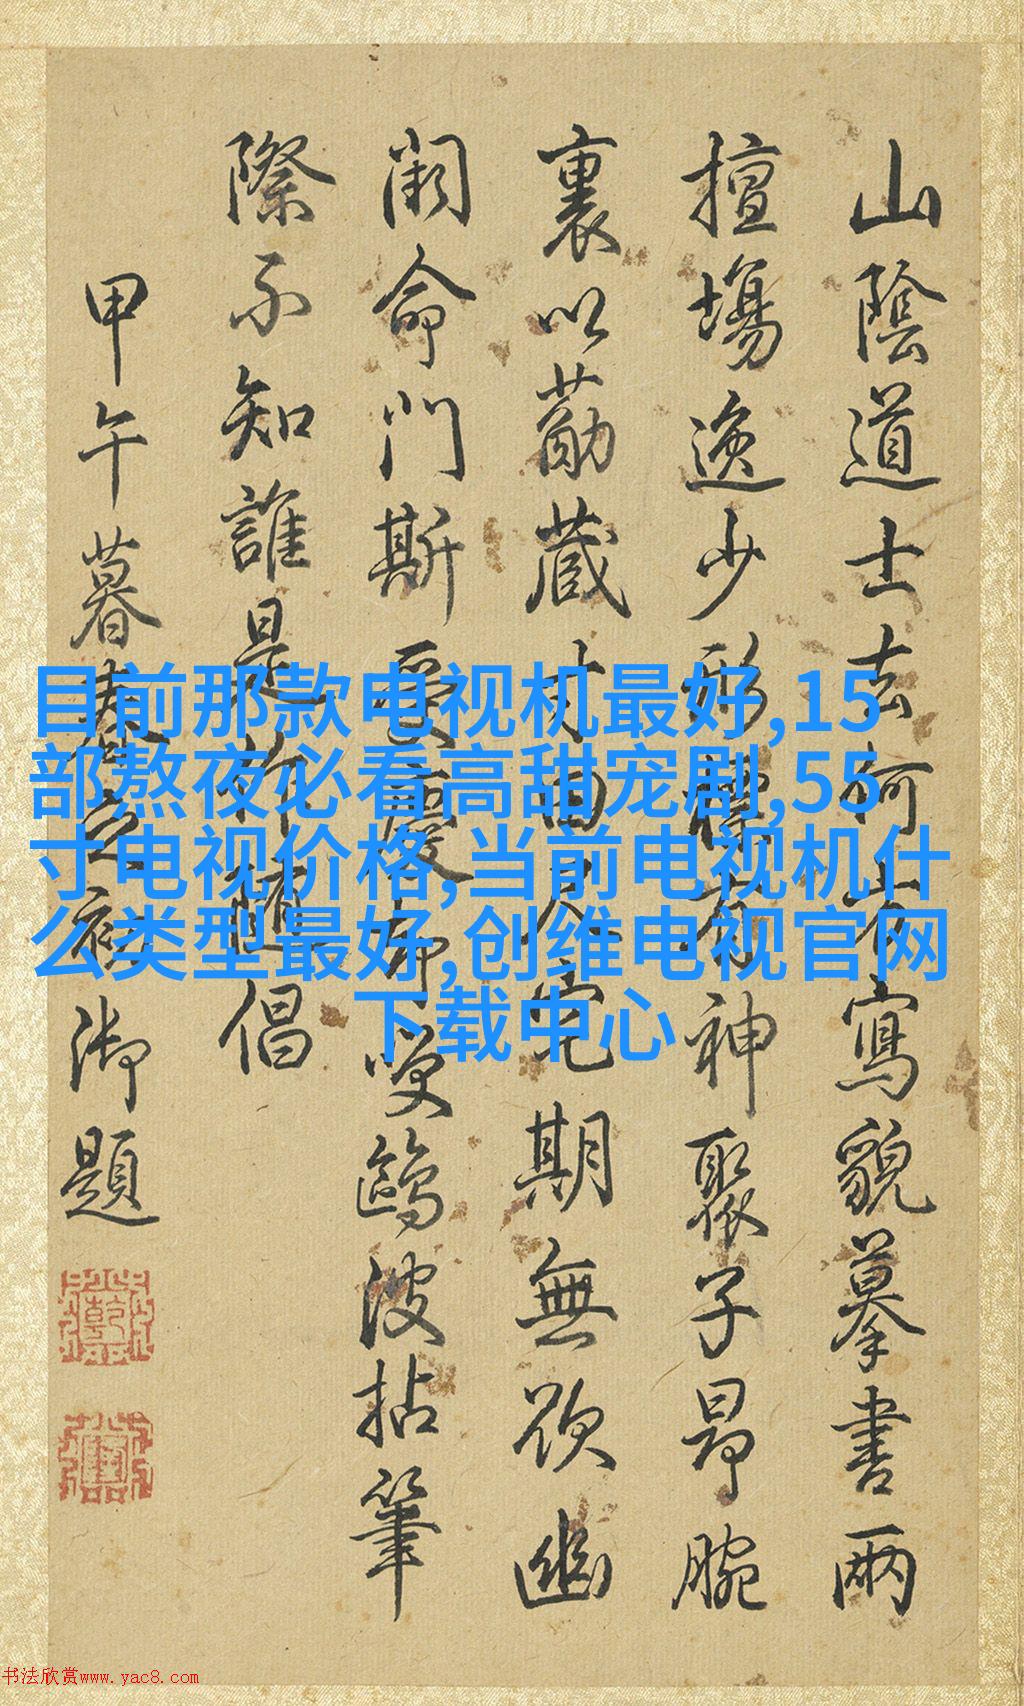 山陰道士去何寫貌摹書兩
擅場逸少形神聚子昂腕
裏以藏期無欲幽
命門斯鷗波拈筆
際不知誰是隨倡
甲午暮春之初御題
目前那款电视机最好,15
部熬夜必看高甜宠剧,55
寸电视价格,当前电视机什
么类型最好,创维电视官网
下载中心
书法欣赏www.yac8.com